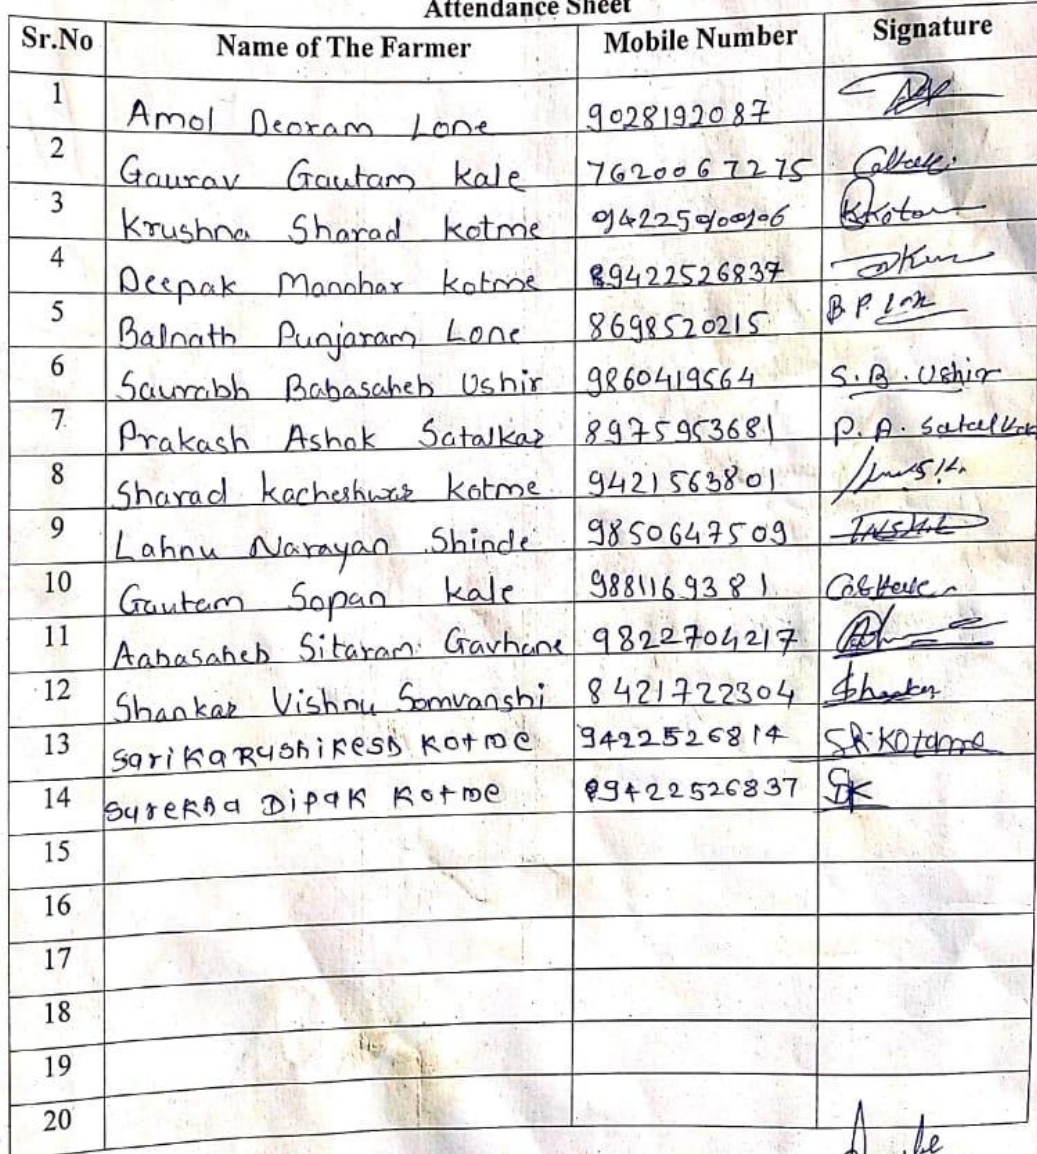 Attendance Sheet
Sr.No Name of The Farmer Mobile Number Signature
1 Amol Deoram Lone 9028192087
2 Gaurav Gautam Kale 7620067275
3 Krushna Sharad Kotme
4 Deepak Manohar Kotme 9422526837
5 Balnath Punjaram Lone 8698520215 B.P. Lone
6 Saurabh Babasaheb Ushir 9860419564 S.B. Ushir
7 Prakash Ashok Satalkar 8975953681 P.A. Satalkar
8 Sharad Kacheshwar Kotme 9421563801
9 Lahnu Narayan Shinde 9850647509
10 Gautam Sopan Kale 9881169381
11 Aabasaheb Sitaram Gavhane 9822704217
12 Shankar Vishnu Somvanshi 8421722304 Shankar
13 Sarika Rushikesh Kotme 9422526814 SR.Kotame
14 Surekha Dipak Kotme 9422526837 SK
15
16
17
18
19
20